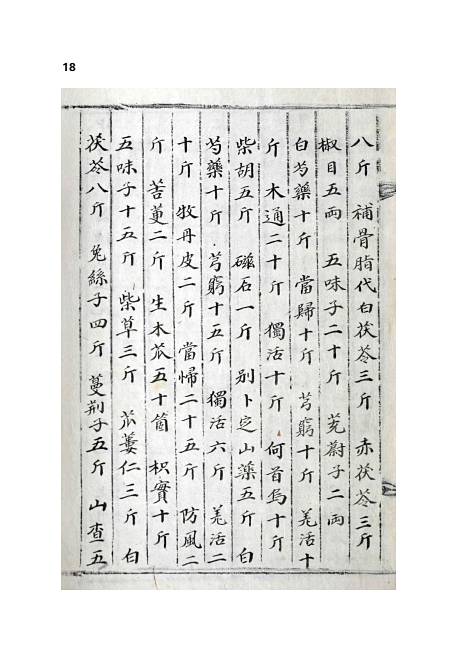 18
八斤 補骨脂代白茯苓三斤 赤茯苓三斤
椒目五両 五味子二十斤 茺蔚子二両
白芍藥十斤 當歸十斤 芎窮十斤 羌活十
斤 木通二十斤 獨活十斤 何首烏十斤
柴胡五斤 磁石一斤 别卜定山藥五斤 白
芍藥十斤 芎窮十五斤 獨活六斤 羌活二
十斤 牧丹皮二斤 當㷌二十五斤 防風二
斤 苦蔓二斤 生木苽五十箇 枳實十斤
五味子十五斤 柴草三斤 苽蔞仁三斤 白
茯苓八斤 兔絲子四斤 蔓荊子五斤 山査五